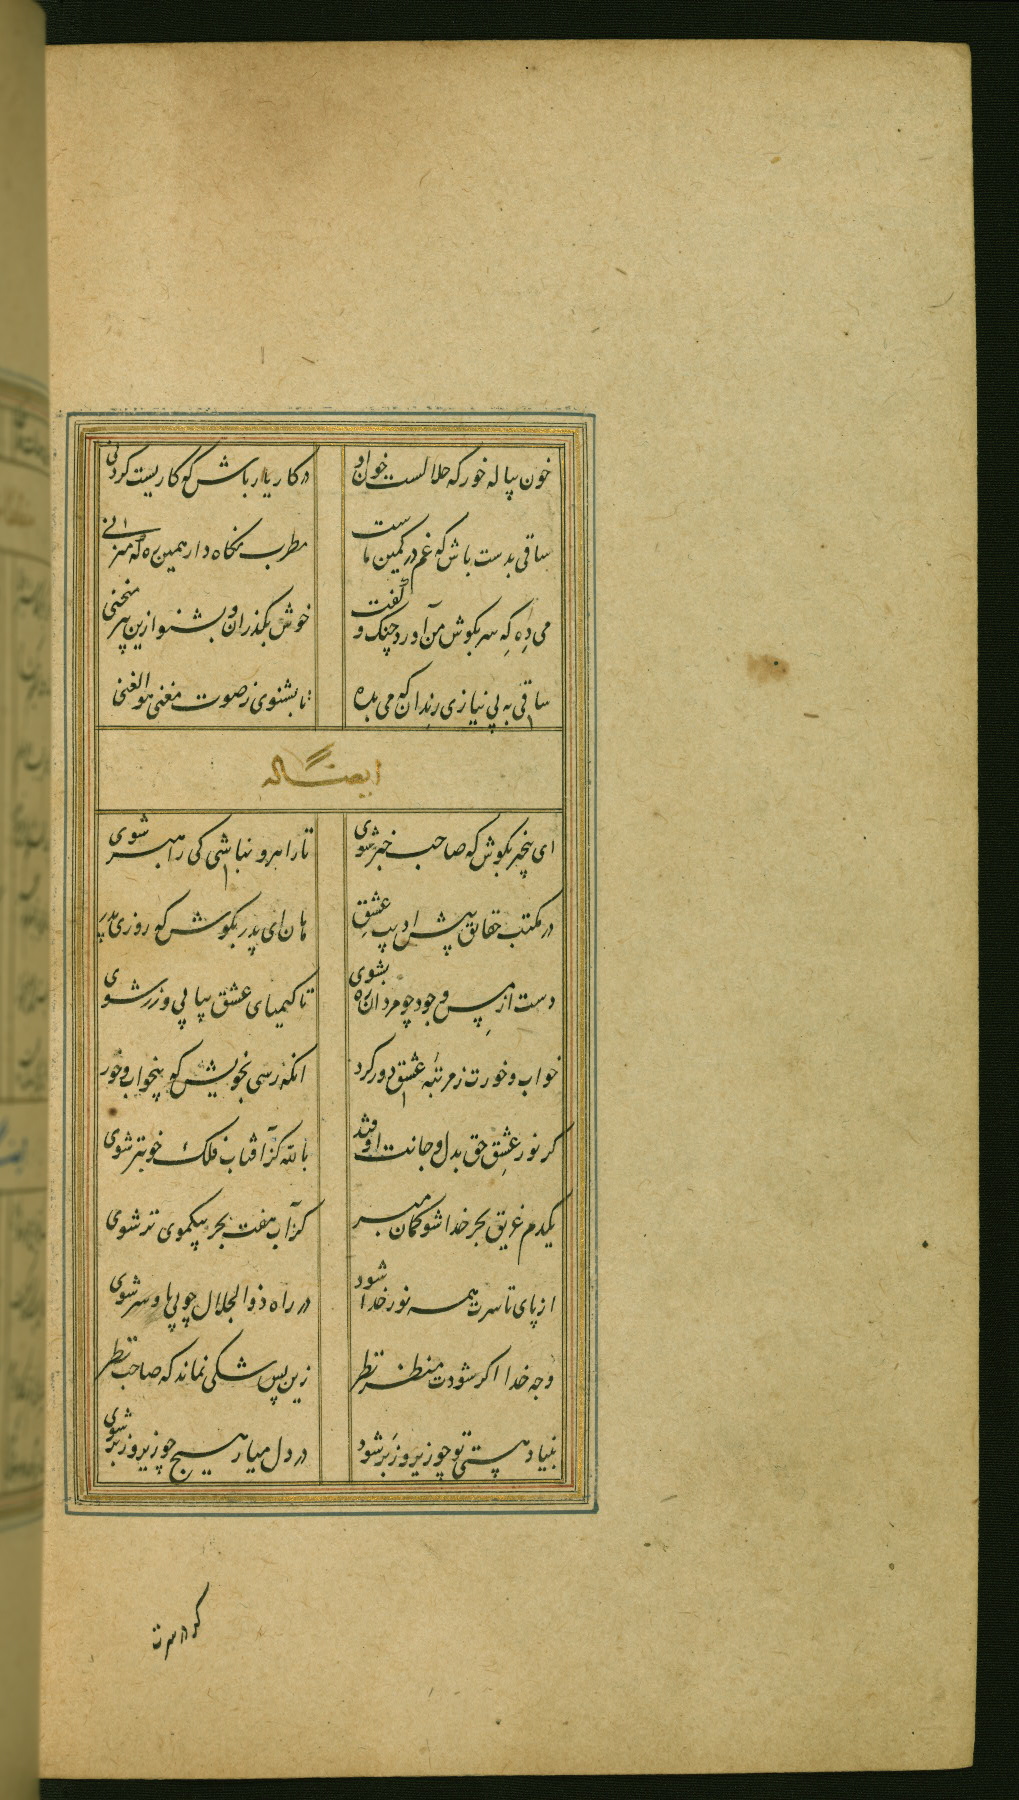 خون پیاله خور که حلالست خون او در کار یار باش که کاریست کردنی
ساقی بدست باش که غم در کمین ماست مطرب نگاه دار همین ره که میزنی
می ده که سر بگوش من آورد چنگ و گفت خوش بگذران و بشنو ازین پیر منحنی
ساقی به بی نیازی رندان که می بده تا بشنوی ز صوت مغنی هو الغنی
ایضاً له
ای بیخبر بکوش که صاحب خبر شوی تا راهرو نباشی کی راهبر شوی
در مکتب حقایق پیش ادیب عشق هان ای پدر بکوش که روزی پدر
دست از مس وجود چو مردان ره بشوی تا کیمیای عشق بیابی و زر شوی
خواب و خورت ز مرتبه عشق دور کرد آنکه رسی بخویش که بیخواب و خور
کر نور عشق حق بدل و جانت اوفتد بالله کز آفتاب فلک خوبتر شوی
یکدم غریق بحر خدا شو گمان مبر کز آب هفت بحر بیکموی تر شوی
از پای تا سرت همه نور خدا شود در راه ذوالجلال چو بی پا و سر شوی
وجه خدا اگر شودت منظر نظر زین پس شکی نماند که صاحب نظر
بنیاد هستی تو چو زیر و زبر شود در دل میار هیچ چو زیر و زبر شوی
کردرسرت